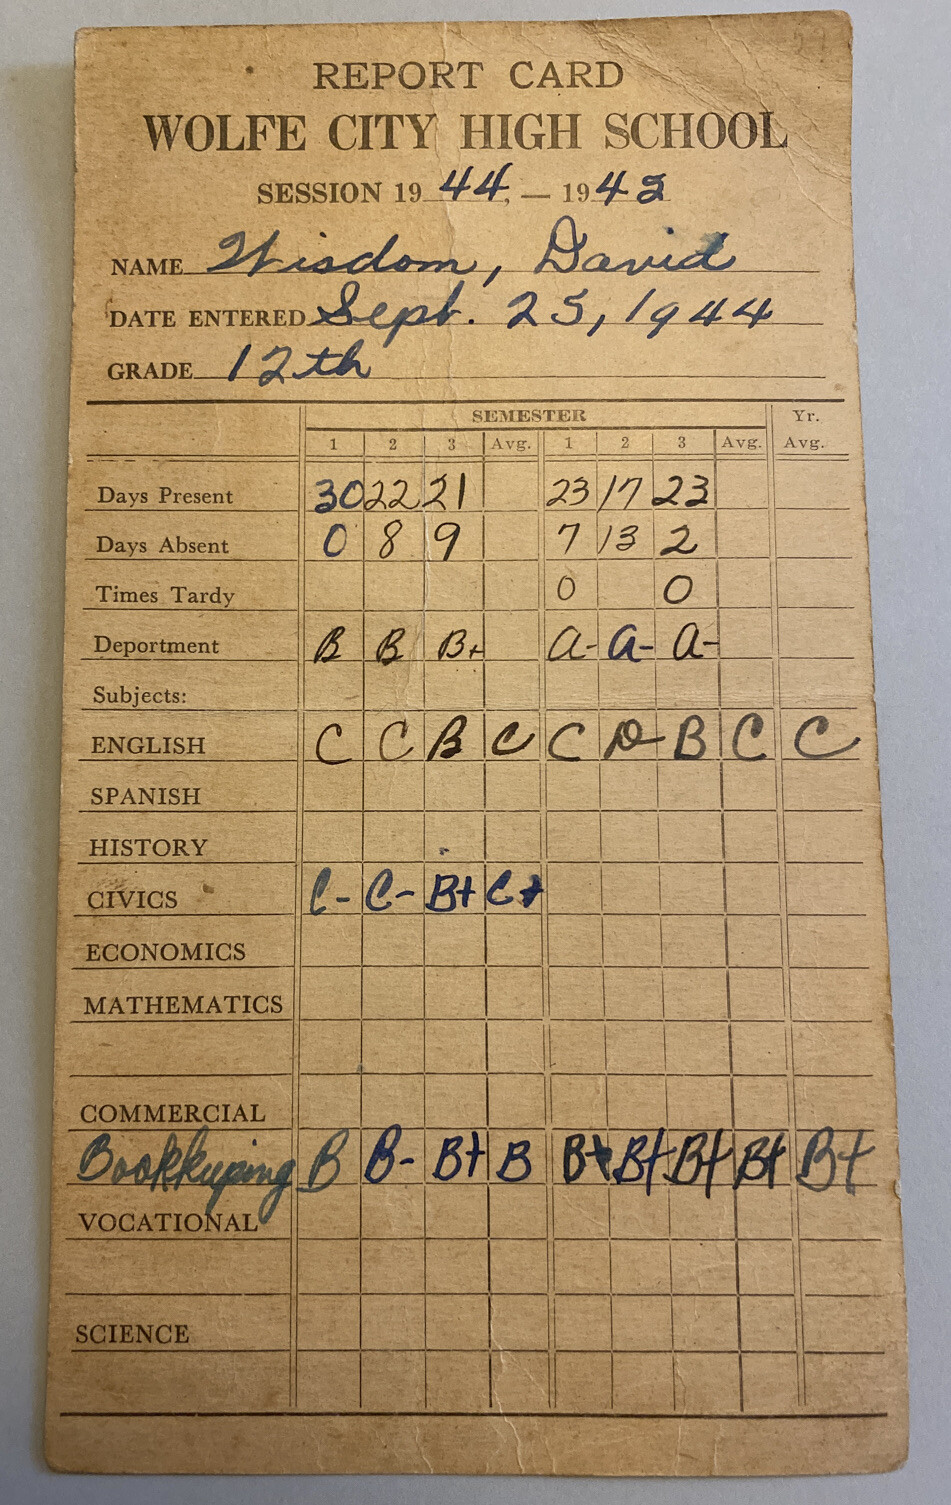 REPORT CARD
WOLFE CITY HIGH SCHOOL
SESSION 19 44, — 19 45
NAME Wisdom, David
DATE ENTERED Sept. 25, 1944
GRADE 12th
SEMESTER Yr.
1 2 3 Avg. 1 2 3 Avg. Avg.
Days Present 30 22 21 23 17 23
Days Absent 0 8 9 7 13 2
Times Tardy 0 0
Deportment B B B+ A- A- A-
Subjects:
ENGLISH C C B C C D B C C
SPANISH
HISTORY
CIVICS C- C- B+ C+
ECONOMICS
MATHEMATICS
COMMERCIAL
Bookkeeping B B- B+ B B+ B+ B+ B+ B+
VOCATIONAL
SCIENCE